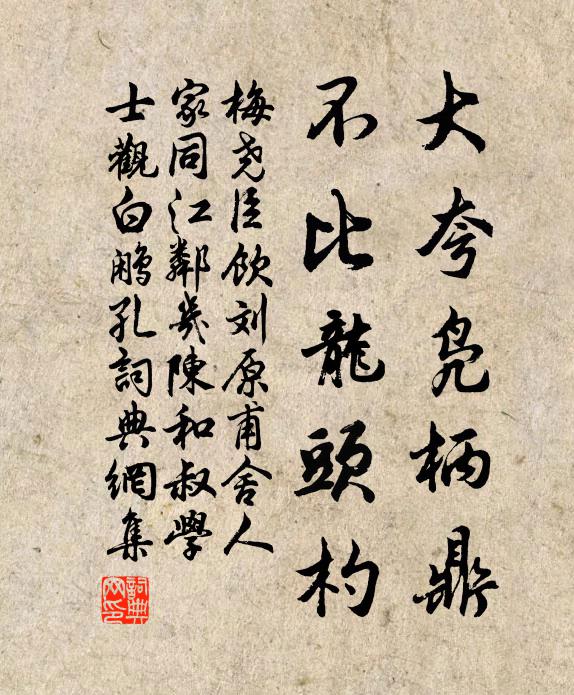 大夸凫柄鼎
不比龍頭杓
梅尧臣飲刘原甫舍人
家同江鄰幾陳和叔學
士觀白鷳孔詞典網集
詞典网印